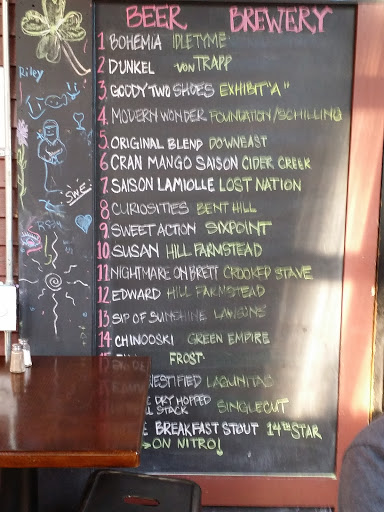 BEER BREWERY
Riley
1 BOHEMIA IDLETYME
2 DUNKEL von TRAPP
3. GOODY TWO SHOES EXHIBIT "A"
4. MODERN WONDER FOUNDATION/SCHILLING
5. ORIGINAL BLEND DOWNEAST
6 CRAN MANGO SAISON CIDER CREEK
7. SAISON LAMIOLLE LOST NATION
SWE
8 CURIOSITIES BENT HILL
9 SWEET ACTION SIXPOINT
10. SUSAN HILL FARMSTEAD
11 NIGHTMARE ON BRETT CROOKED STAVE
12 EDWARD HILL FARMSTEAD
13. SIP OF SUNSHINE LAWSONS
14 CHINOOSKI GREEN EMPIRE
15 FROST
LAGUNITAS
DRY HOPPED
STACK SINGLECUT
BREAKFAST STOUT 14TH STAR
ON NITRO!